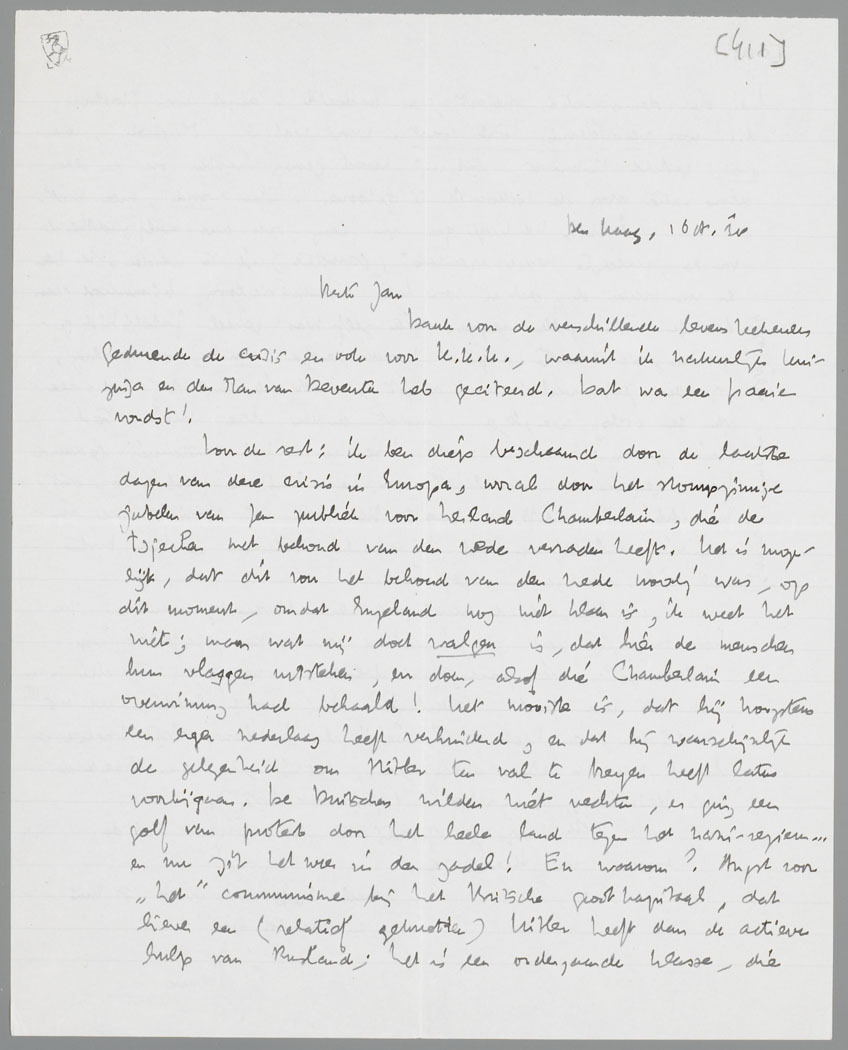 [411]
Den Haag, 1 Oct. '38
Beste Jan
Dank voor de verschillende levensteekenen
gedurende de crisis en ook voor K.K.K., waaruit ik natuurlijk Hui-
zinga en den Man van Deventer heb geciteerd. Dat was een fraaie
vondst!
Voor de rest: ik ben diep beschaamd door de laatste
dagen van deze crisis in Europa, vooral door het stompzinnige
jubelen van het publiek voor heiland Chamberlain, die de
Tsjechen met behoud van den vrede verraden heeft. Het is moge-
lijk, dat dit voor het behoud van den vrede noodig was, op
dit moment, omdat Engeland nog niet klaar is, ik weet het
niet; maar wat mij doet walgen is, dat hier de menschen
hun vlaggen uitsteken, en doen, alsof die Chamberlain een
overwinning had behaald! Het mooiste is, dat hij hoogstens
een erger nederlaag heeft verhinderd, en dat hij waarschijnlijk
de gelegenheid om Hitler ten val te brengen heeft laten
voorbijgaan. De Duitschers wilden niet vechten, er ging een
golf van protest door het heele land tegen het nazi-regiem...
en nu zit het weer in den zadel! En waarom? Angst voor
„het" communisme bij het Britsche grootkapitaal, dat
liever een (relatief gebonden) Hitler heeft dan de actieve
hulp van Rusland; het is een ondergaande klasse, die